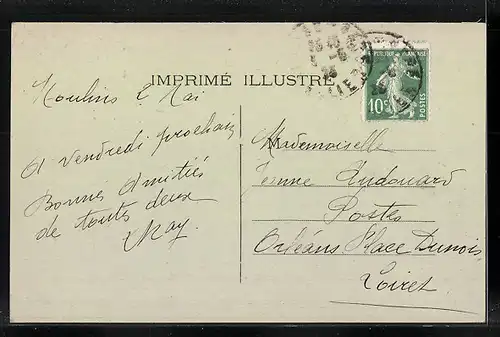 IMPRIMÉ ILLUSTRÉ
REPUBLIQUE FRANÇAISE
10c
POSTES
Moulins 2 Mai
A vendredi prochain
Bonnes Amitiés
de toutes deux
May.
Mademoiselle
Jeanne Audouard
Postes
Orléans Place Dunois
Loiret